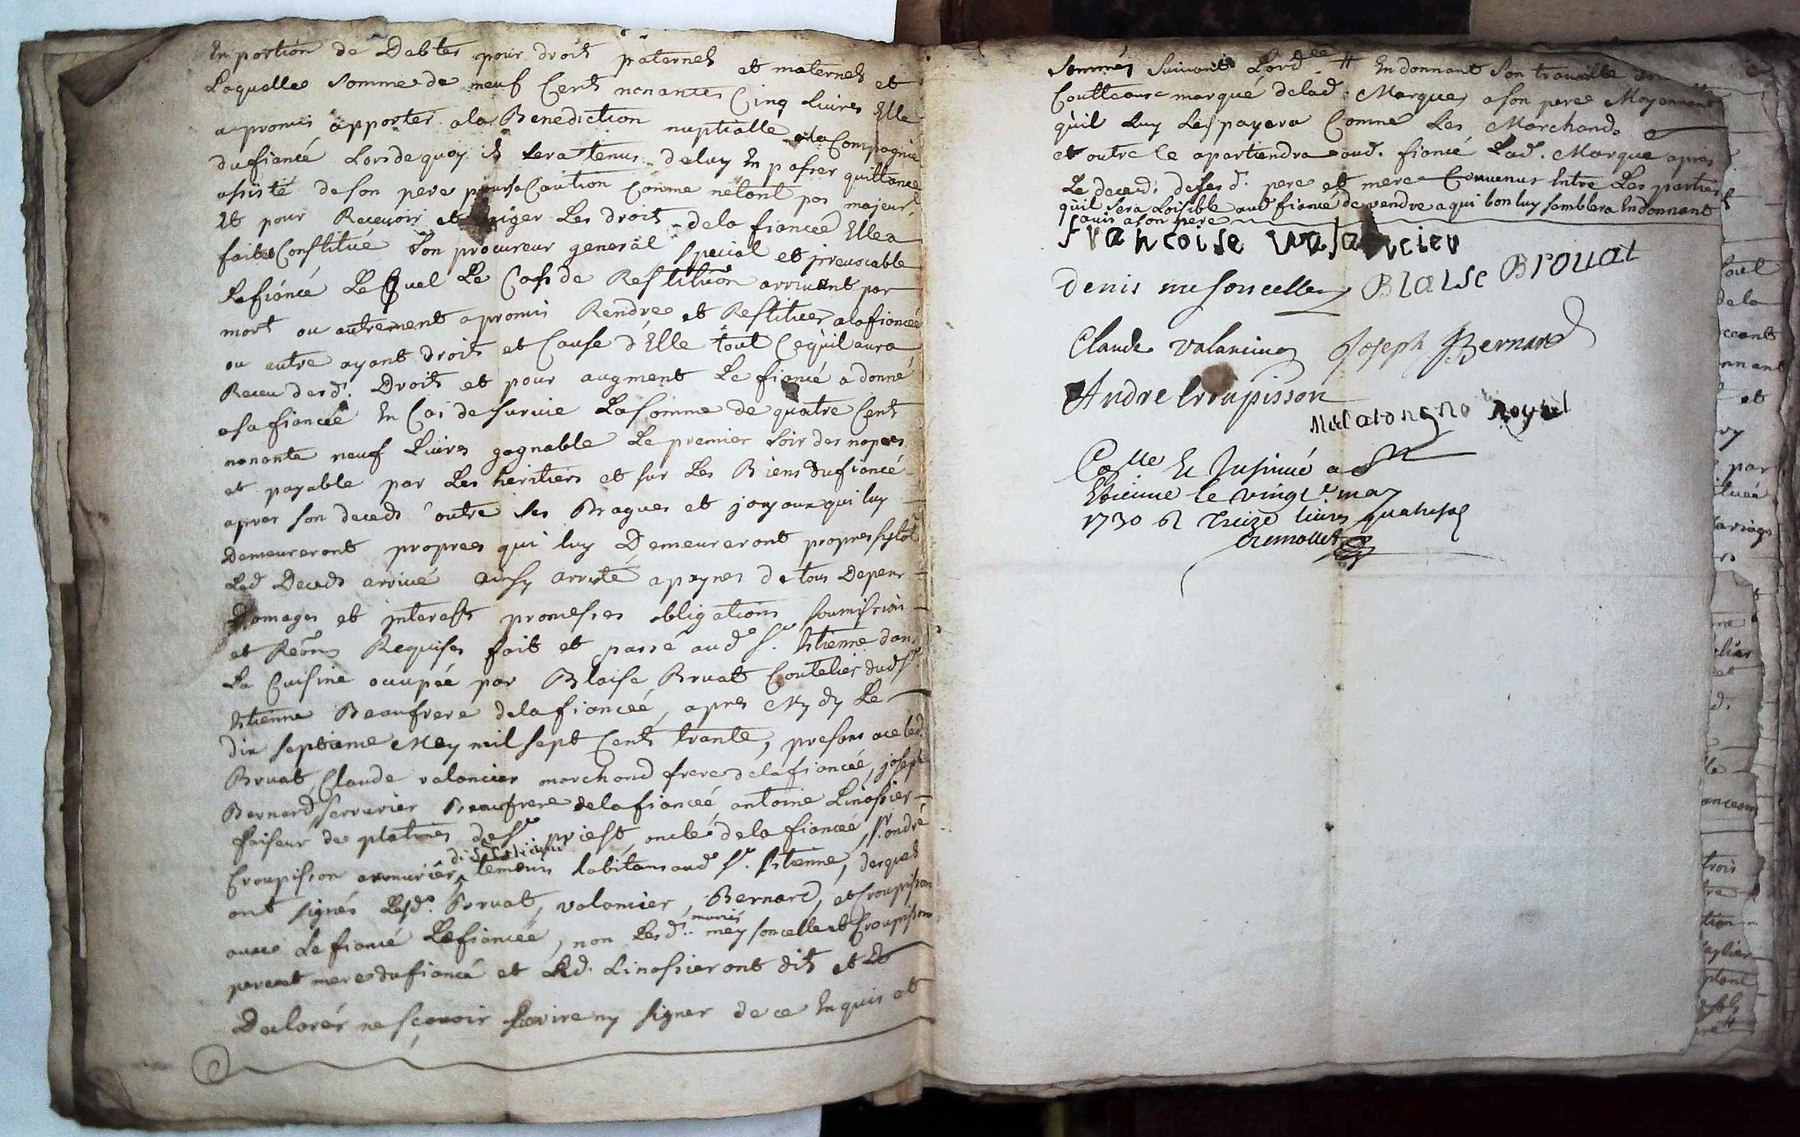 En portion de Debtes pour droits paternels et maternels et
Laquelle somme de neuf Cents nonantes Cinq Livres Elle
a promis apporter a la Benediction nuptialle a la Compagnie
du fiancé Lors de quoy il sera tenus de luy En passer quittance
assisté de son pere pour sa Caution Comme netant pas majeur,
Et pour Recevoir et Exiger Les droits de la fiancée Elle a
fait et Constitué son procureur general special et jrrevocable
Le fiancé Lequel Le Cas de Restitution arrivant par
mort ou autrement a promis Rendre et Restituer a la fiancée
ou autre ayant droits et Cause d'Elle tout Ce quil aura
Receu desd. Droits et pour augment Le fiancé a donné
a sa fiancée En Cas de survie La somme de quatre Cents
nonante neuf Livres gagnable Le premier soir des nopces
et payable par Les heritiers et sur Les Biens du fiancé
apres son deceds outre Les Bragues et joyaux qui luy
Demeureront propres qui luy Demeureront propres sytot
Led. Deceds arrivé ainsy arresté a paynes de tous Depens
Domages et jnterests promesses obligations soumissions
et Reōns Requises fait et passé aud. St. Etienne dans
La Cuisine occupée par Blaise Bruat Coutelier dud St
Etienne Beaufrere de la fiancée, apres Mydy Le
dix septieme May mil sept Cents trante, presens a ce led.
Bruat, Claude valancier marchand frere de la fiancée, joseph
Bernard serrurier Beaufrere de la fiancée antoine Linossier
faiseur de platines de St priest, oncle de la fiancée, sr. andré
Croupisson armurier temoins habitans aud. St. Etienne, desquels
ont signés Lesd. Bruat, valancier, Bernard, et Croupisson
avec Le fiancé La fiancée, non Lesd. mariés mey soncelle et Croupisson
pere et mere du fiancé et Led. Linossier ont dits et
Declarés ne sçavoir Ecrire ny signer de ce Enquis et
sommés suivant Lord.ce # En donnant son travaille En
Coutteaux marque de lad. Marque a son pere Moyennant
quil Luy Les payera Comme Les Marchands
et outre Ce apartiendra aud. fiancé Lad. Marque apres
Le deced: desesd. pere et mere Convenus Entre Les parties
quil sera Loisible aud fiancé de vendre a qui bon luy semblera En donnant
avis a son pere
francoise valancier
denis mesoncelle Blaise Brouat
Claude valancier Joseph Bernard
Andre Croupisson
Colle Et Insinué a St
Etienne le vingt. may
1730 Rt treize livres quatre sols